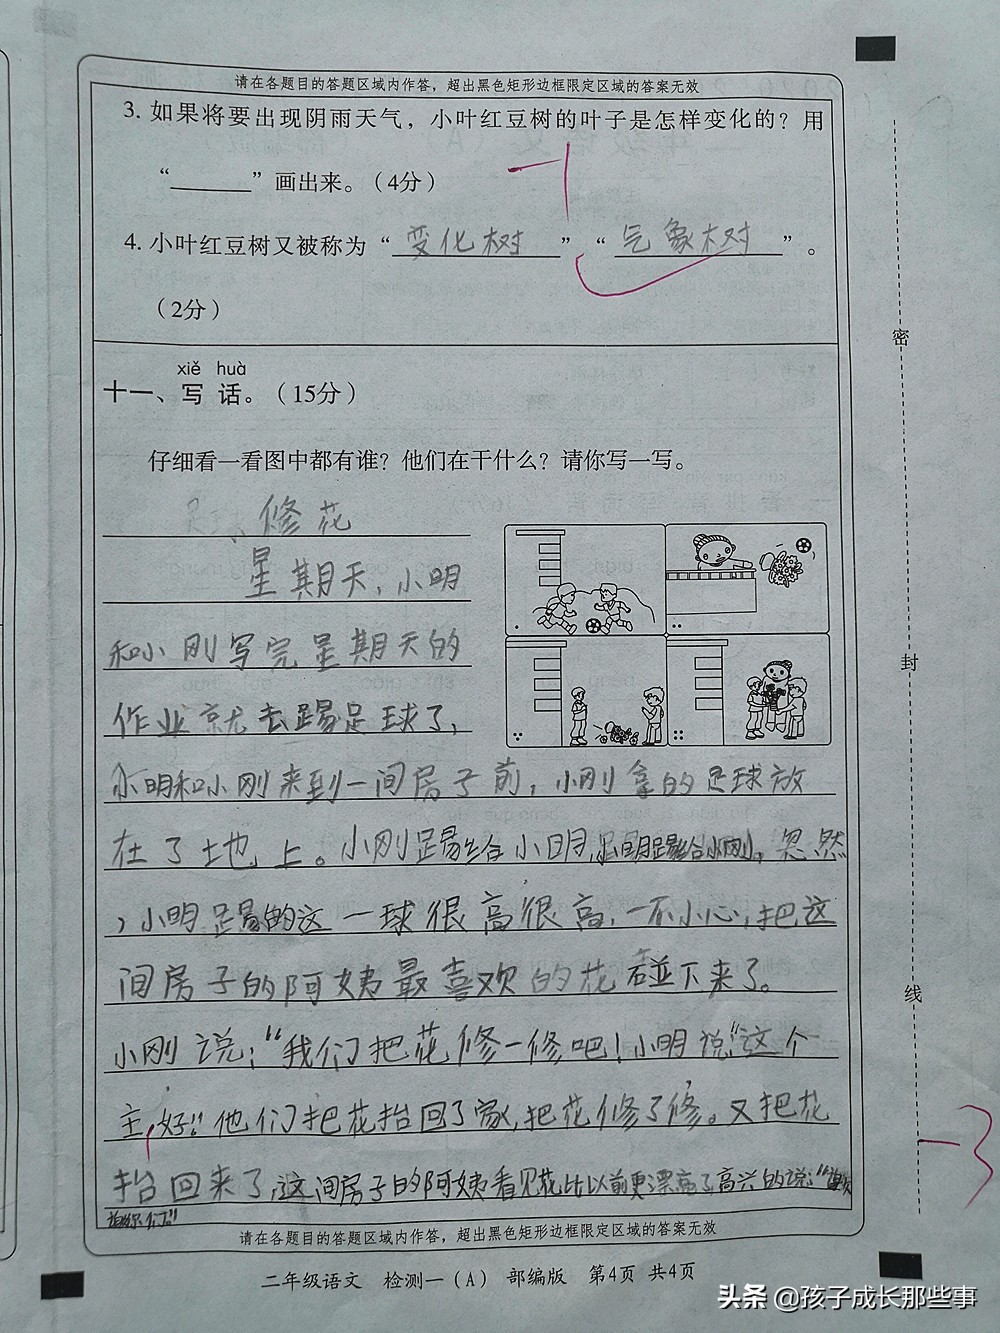 请在各题目的答题区域内作答，超出黑色矩形边框限定区域的答案无效
3. 如果将要出现阴雨天气，小叶红豆树的叶子是怎样变化的？用
“______”画出来。（4分）
-1
4. 小叶红豆树又被称为“变化树”“气象树”。
（2分）
xiě huà
十一、写 话。（15分）
仔细看一看图中都有谁？他们在干什么？请你写一写。
修花
星期天，小明
和小刚写完星期天的
作业就去踢足球了，
小明和小刚来到一间房子前，小刚拿的足球放
在了地上。小刚踢给小明，小明踢给小刚，忽然
，小明踢的这一球很高很高，一不小心，把这
间房子的阿姨最喜欢的花碰下来了。
小刚说：“我们把花修一修吧！小明说“这个
主，好！”他们把花抬回了家，把花修了修。又把花
抬回来了，这间房子的阿姨看见花比以前更漂亮了高兴的说：“谢谢
谢你们”
-3
请在各题目的答题区域内作答，超出黑色矩形边框限定区域的答案无效
二年级语文 检测一（A） 部编版 第4页 共4页
密
封
线
头条 @孩子成长那些事